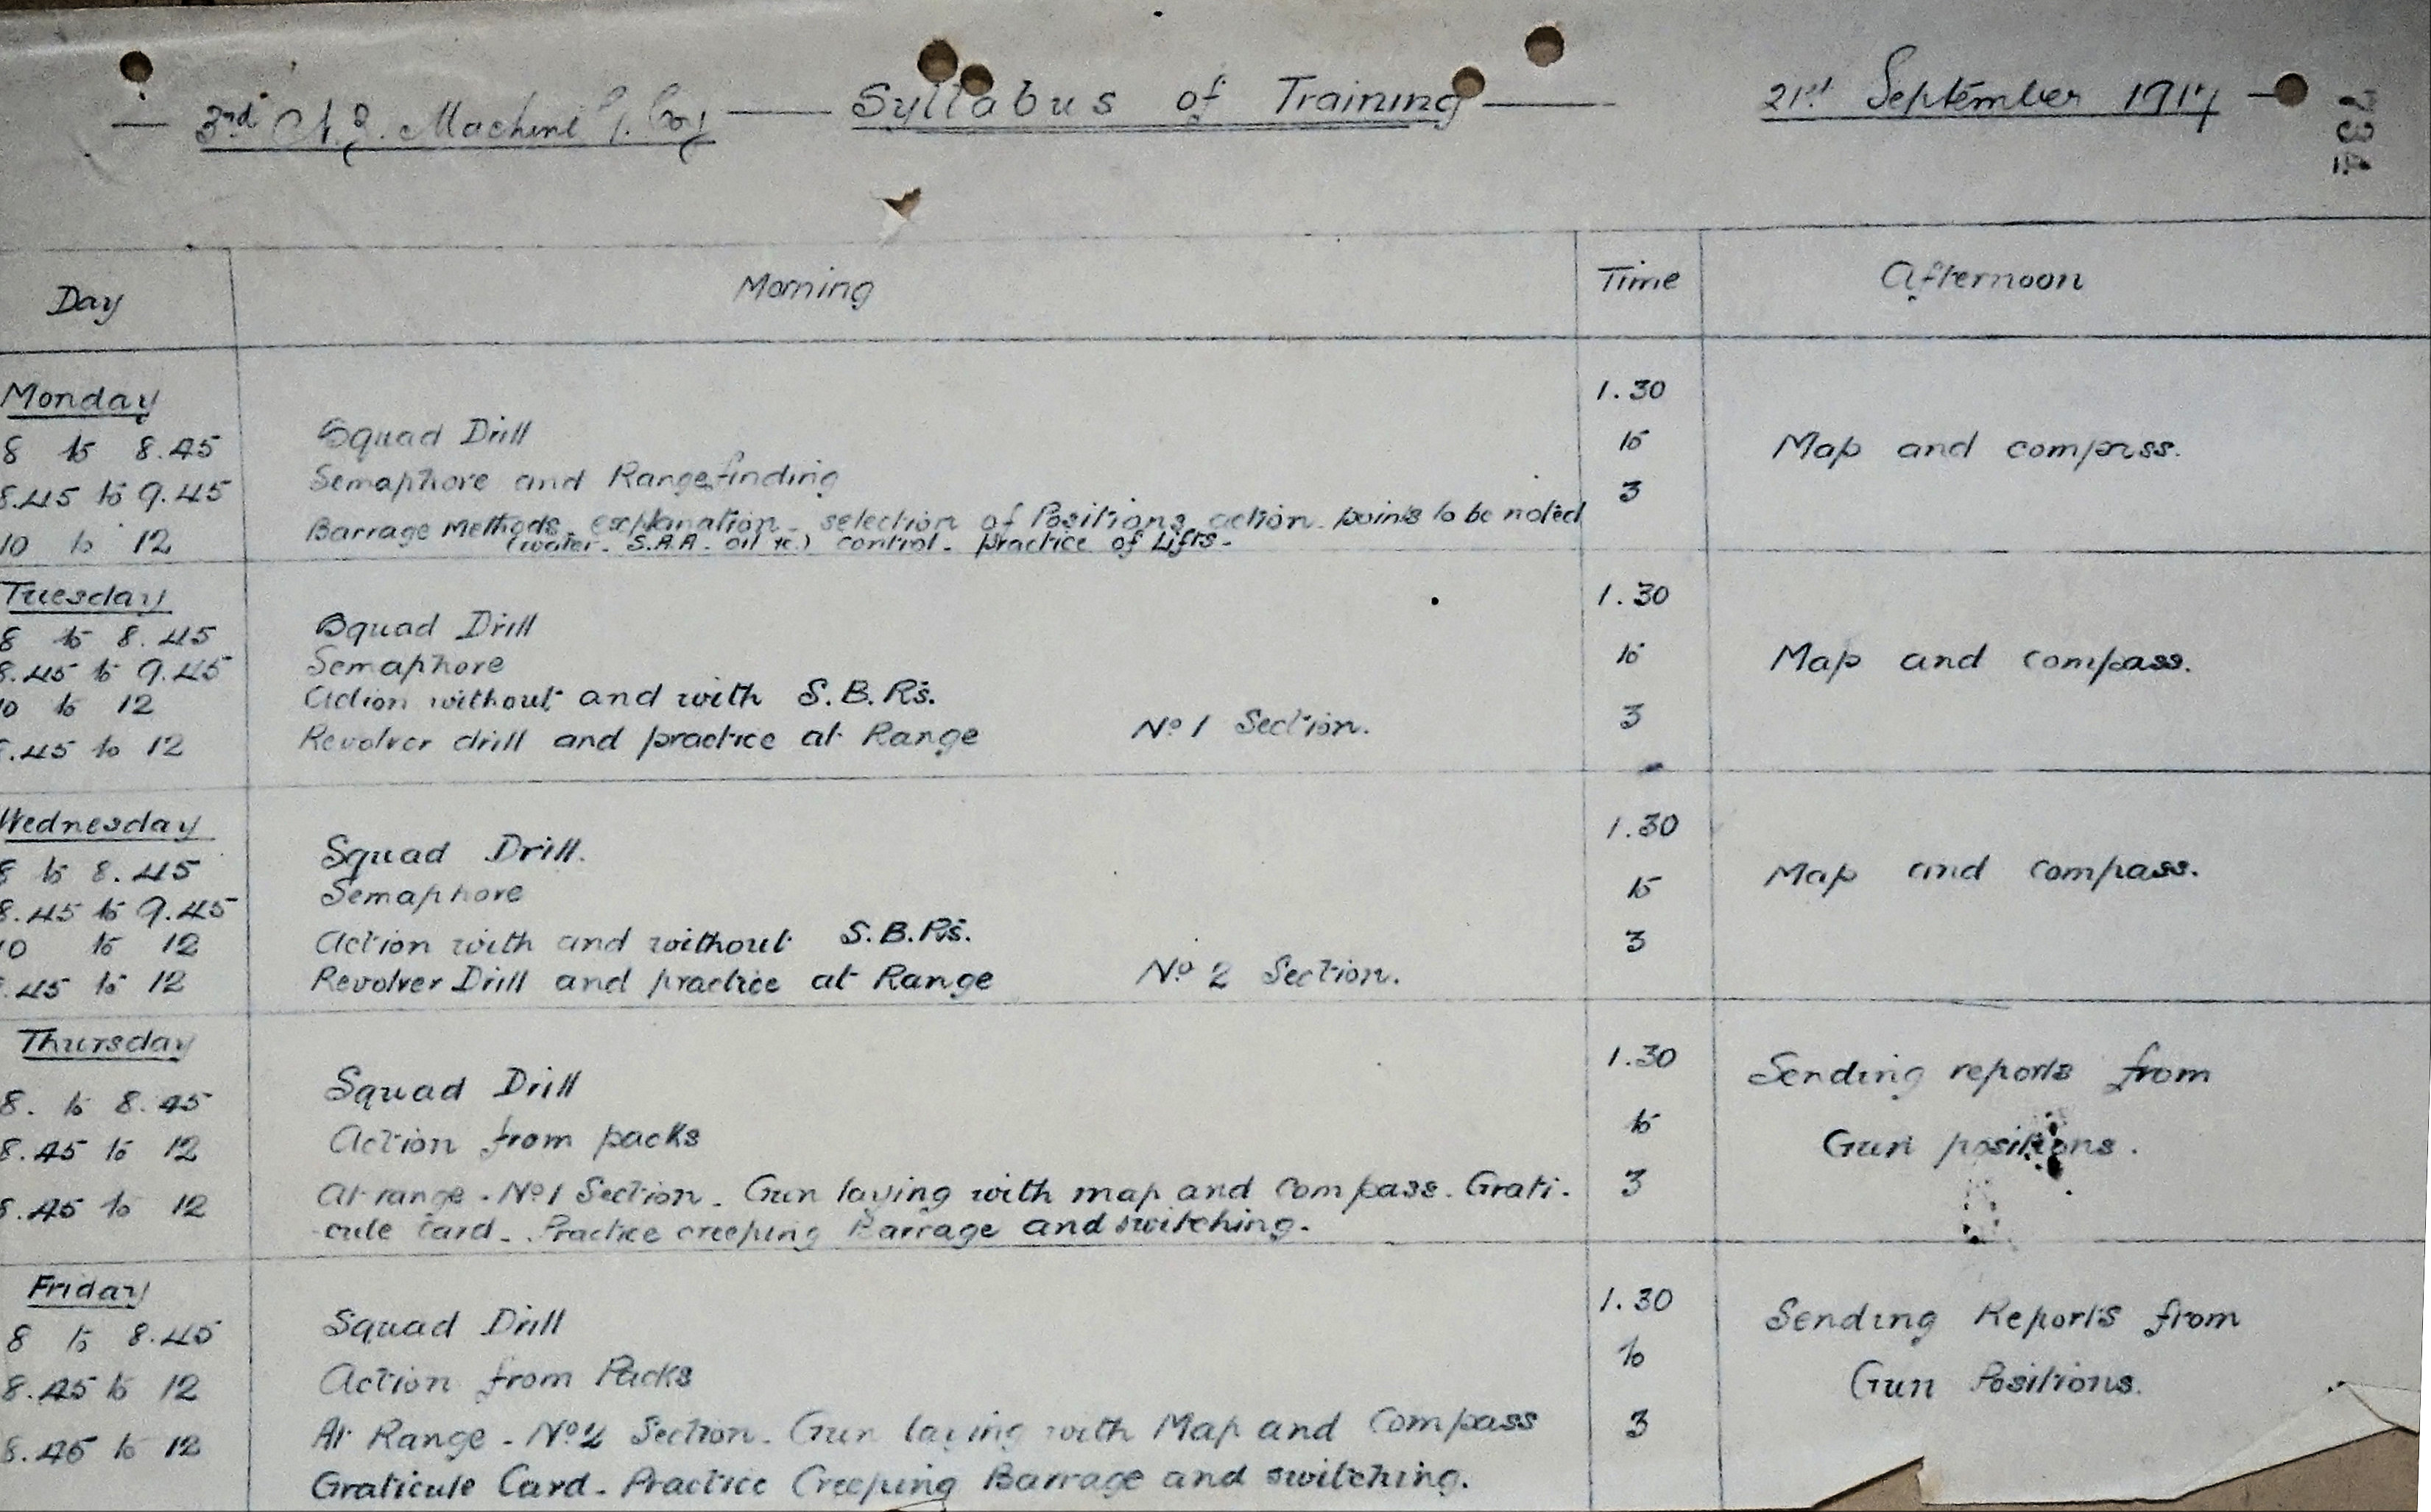 — 3rd N.Z. Machine G. Coy — Syllabus of Training — 21st September 1917 —
734
Day Morning Time Afternoon
Monday 1.30
8 to 8.45 Squad Drill to Map and compass.
8.45 to 9.45 Semaphore and Rangefinding 3
10 to 12 Barrage Methods - explanation - selection of Positions, action - points to be noted
(water - S.A.A. oil &c.) control - practice of Lifts -
Tuesday 1.30
8 to 8.45 Squad Drill
8.45 to 9.45 Semaphore to Map and compass.
10 to 12 Action without and with S.B.R's.
.45 to 12 Revolver drill and practice at Range No 1 Section. 3
Wednesday 1.30
8 to 8.45 Squad Drill.
8.45 to 9.45 Semaphore to Map and compass.
10 to 12 Action with and without S.B.R's. 3
.45 to 12 Revolver Drill and practice at Range No 2 Section.
Thursday 1.30
8. to 8.45 Squad Drill Sending reports from
8.45 to 12 Action from packs to Gun positions.
8.45 to 12 At range - No 1 Section - Gun laying with map and compass. Grati- 3
-cule Card - Practice creeping Barrage and switching.
Friday 1.30
8 to 8.45 Squad Drill Sending Reports from
8.45 to 12 Action from Packs to Gun Positions.
8.45 to 12 At Range - No 2 Section - Gun laying with Map and Compass 3
Graticule Card - Practice Creeping Barrage and switching.